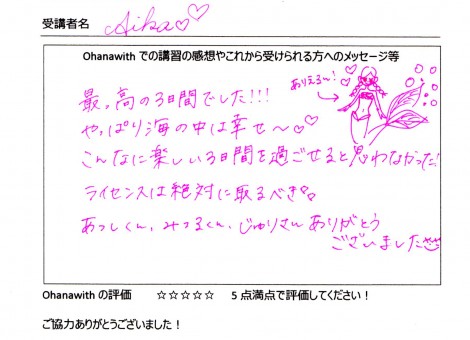 受講者名 Aika♡♡
Ohanawith での講習の感想やこれから受けられる方へのメッセージ等
ありえる～!
最。高の3日間でした!!!
やっぱり海の中は幸せ～♡♡
こんなに楽しい3日間を過ごせると思わなかった!
ライセンスは絶対に取るべき
あつしくん、みつるくん、じゅりさん ありがとう
ございました
Ohanawith の評価 ☆☆☆☆☆ 5 点満点で評価してください！
ご協力ありがとうございました！